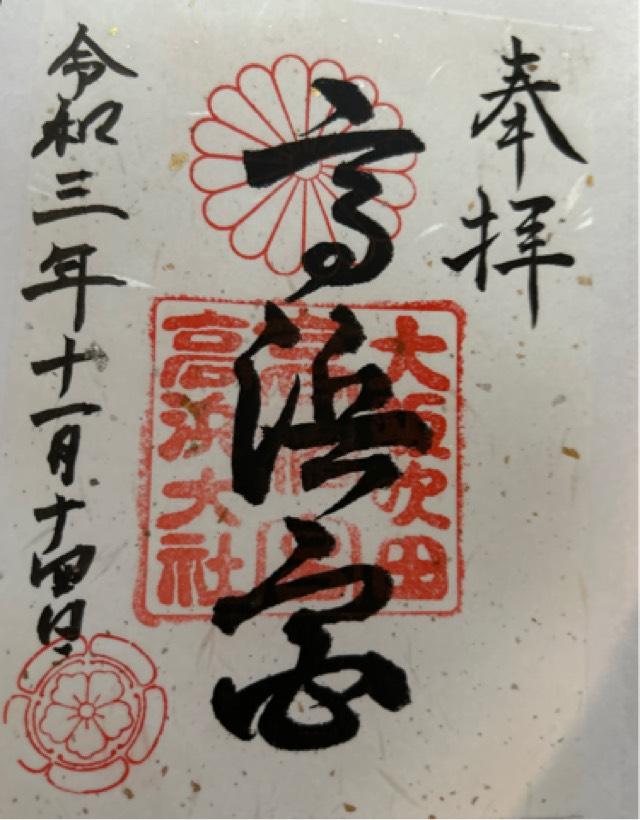 奉拝
高浜宮
大阪吹田
高浜大社
令和三年十一月十四日